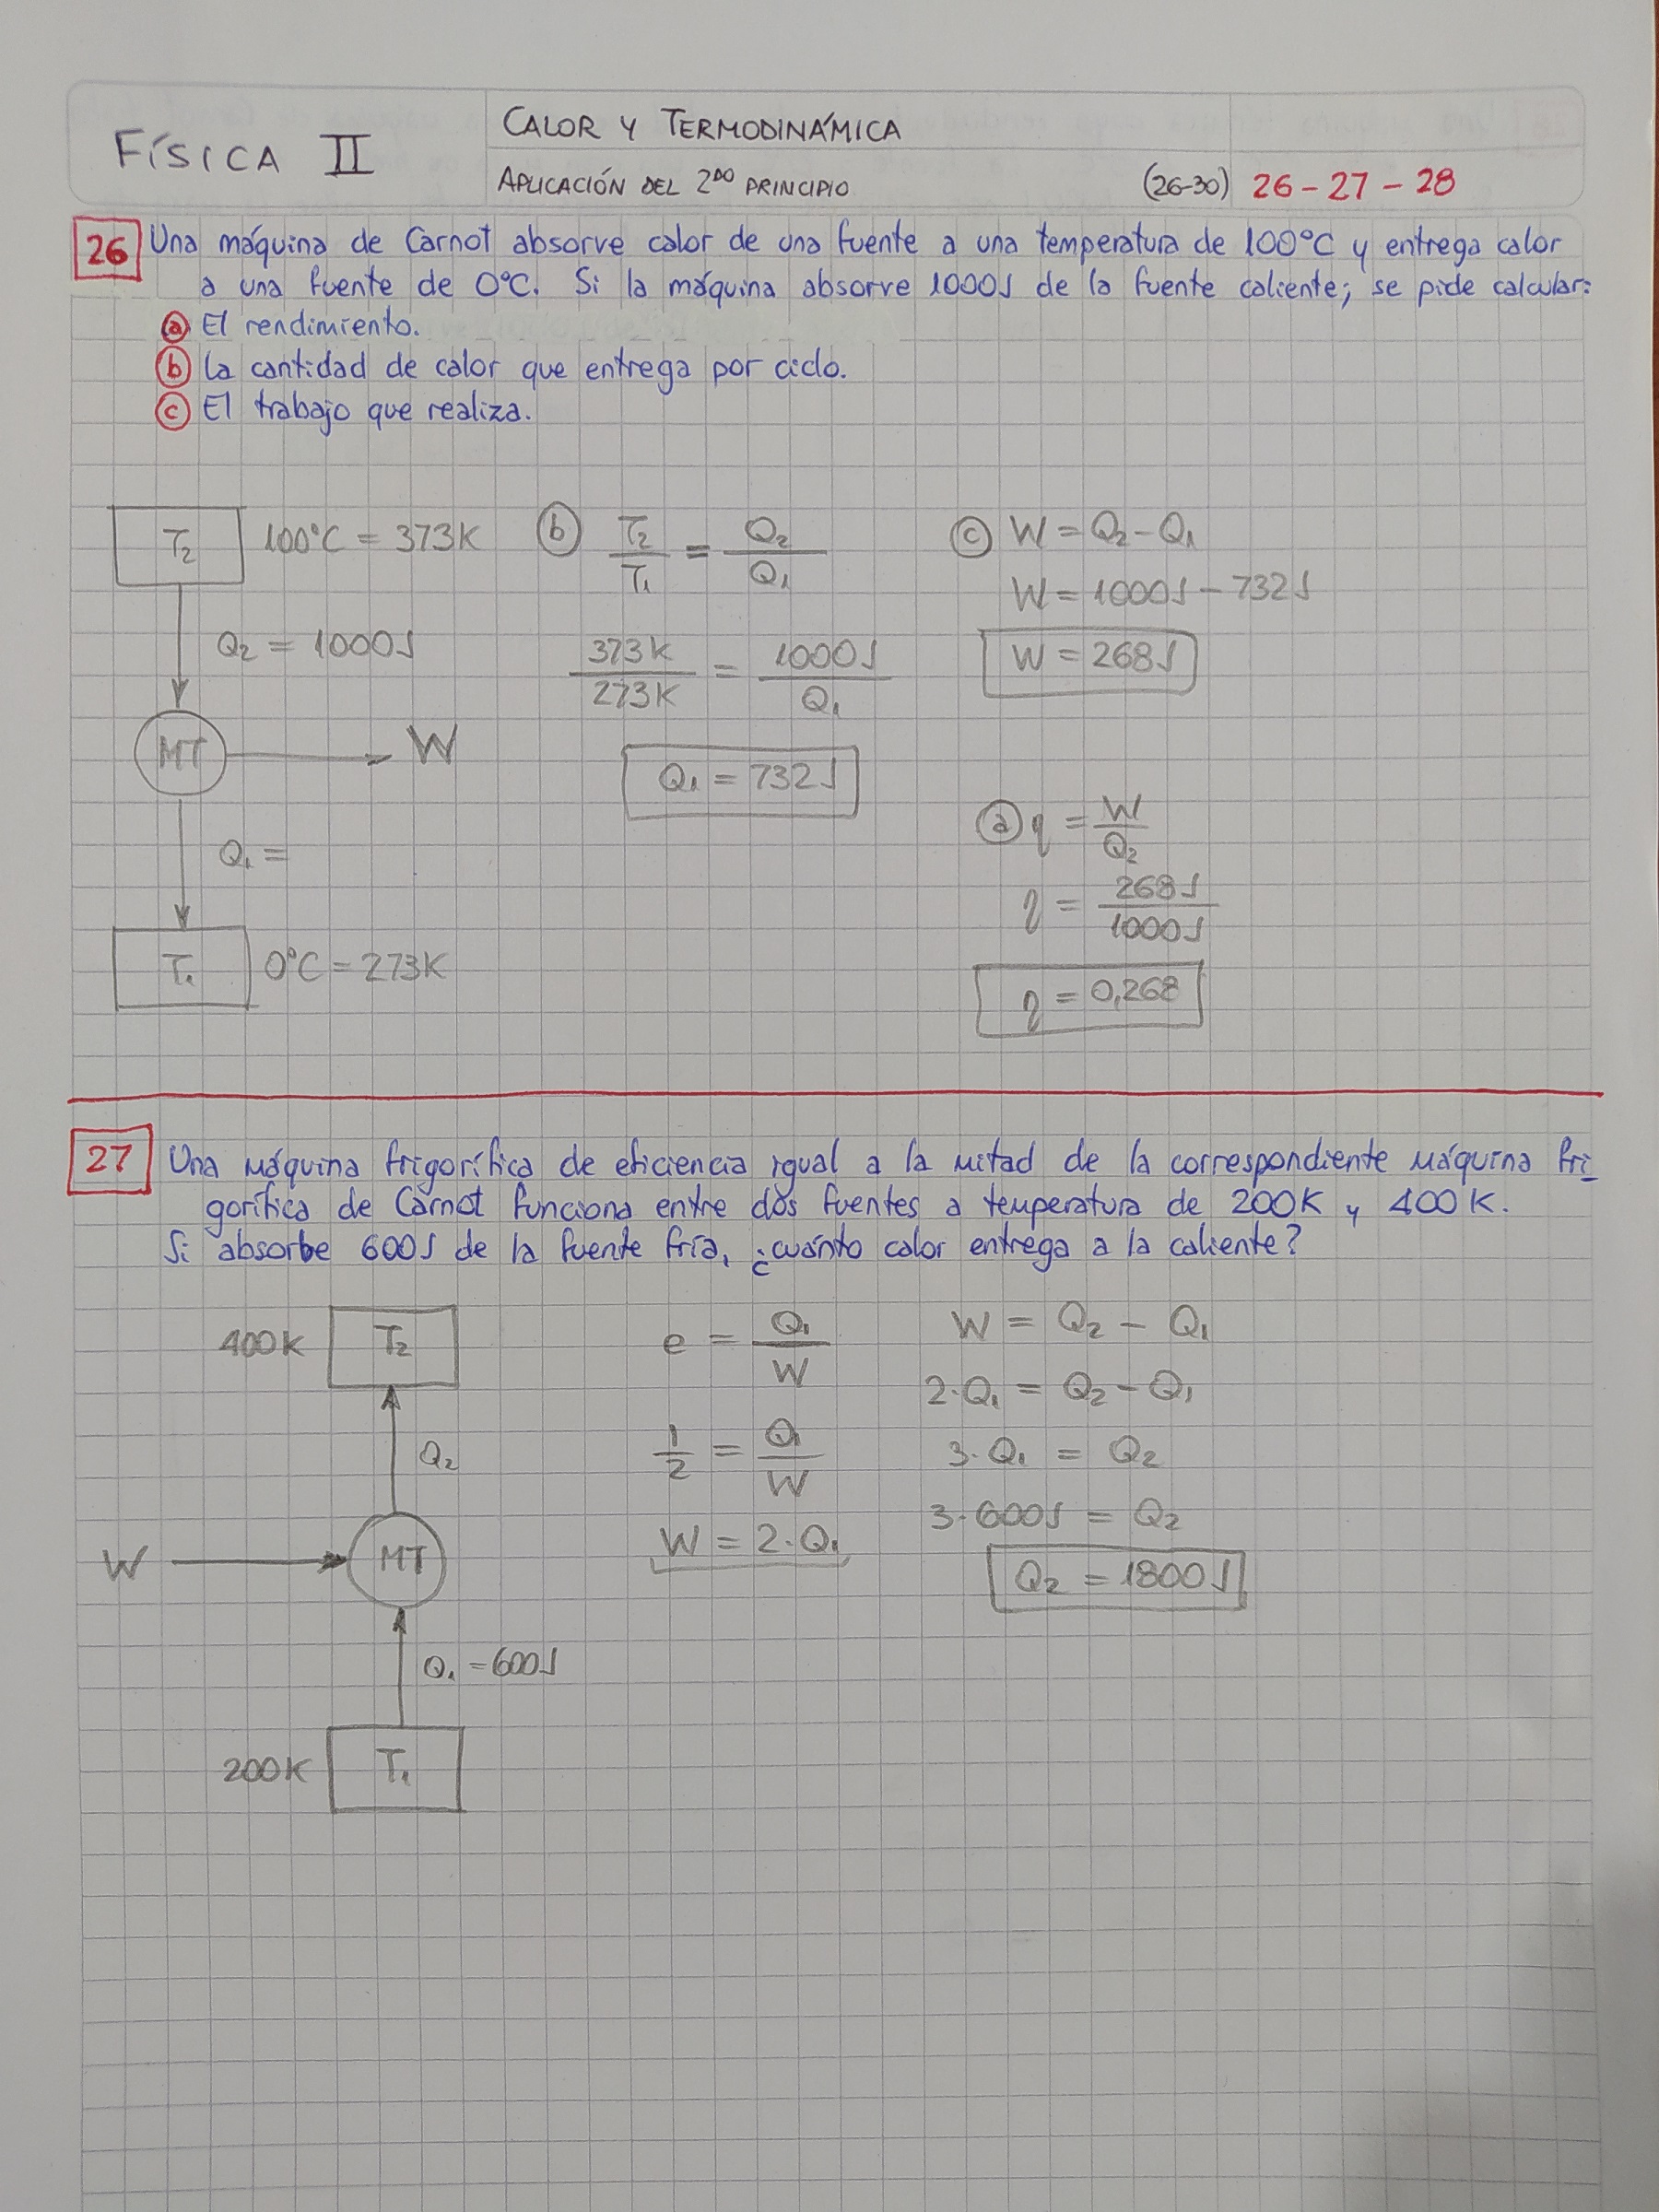 FÍSICA II
CALOR Y TERMODINÁMICA
APLICACIÓN DEL 2DO PRINCIPIO (26-30) 26 - 27 - 28
26 Una máquina de Carnot absorve calor de una fuente a una temperatura de 100°C y entrega calor
a una fuente de 0°C. Si la máquina absorve 1000J de la fuente caliente; se pide calcular:
a El rendimiento.
b La cantidad de calor que entrega por ciclo.
c El trabajo que realiza.
T2 100°C = 373K
Q2 = 1000J
MT W
Q1 =
T1 0°C = 273K
b T2/T1 = Q2/Q1
373K/273K = 1000J/Q1
Q1 = 732J
c W = Q2 - Q1
W = 1000J - 732J
W = 268J
a η = W/Q2
η = 268J/1000J
η = 0,268
27 Una máquina frigorífica de eficiencia igual a la mitad de la correspondiente máquina fri-
gorífica de Carnot funciona entre dos fuentes a temperatura de 200K y 400K.
Si absorbe 600J de la fuente fría, ¿cuánto calor entrega a la caliente?
400K T2
Q2
W MT
Q1 = 600J
200K T1
e = Q1/W
1/2 = Q1/W
W = 2·Q1
W = Q2 - Q1
2·Q1 = Q2 - Q1
3·Q1 = Q2
3·600J = Q2
Q2 = 1800J